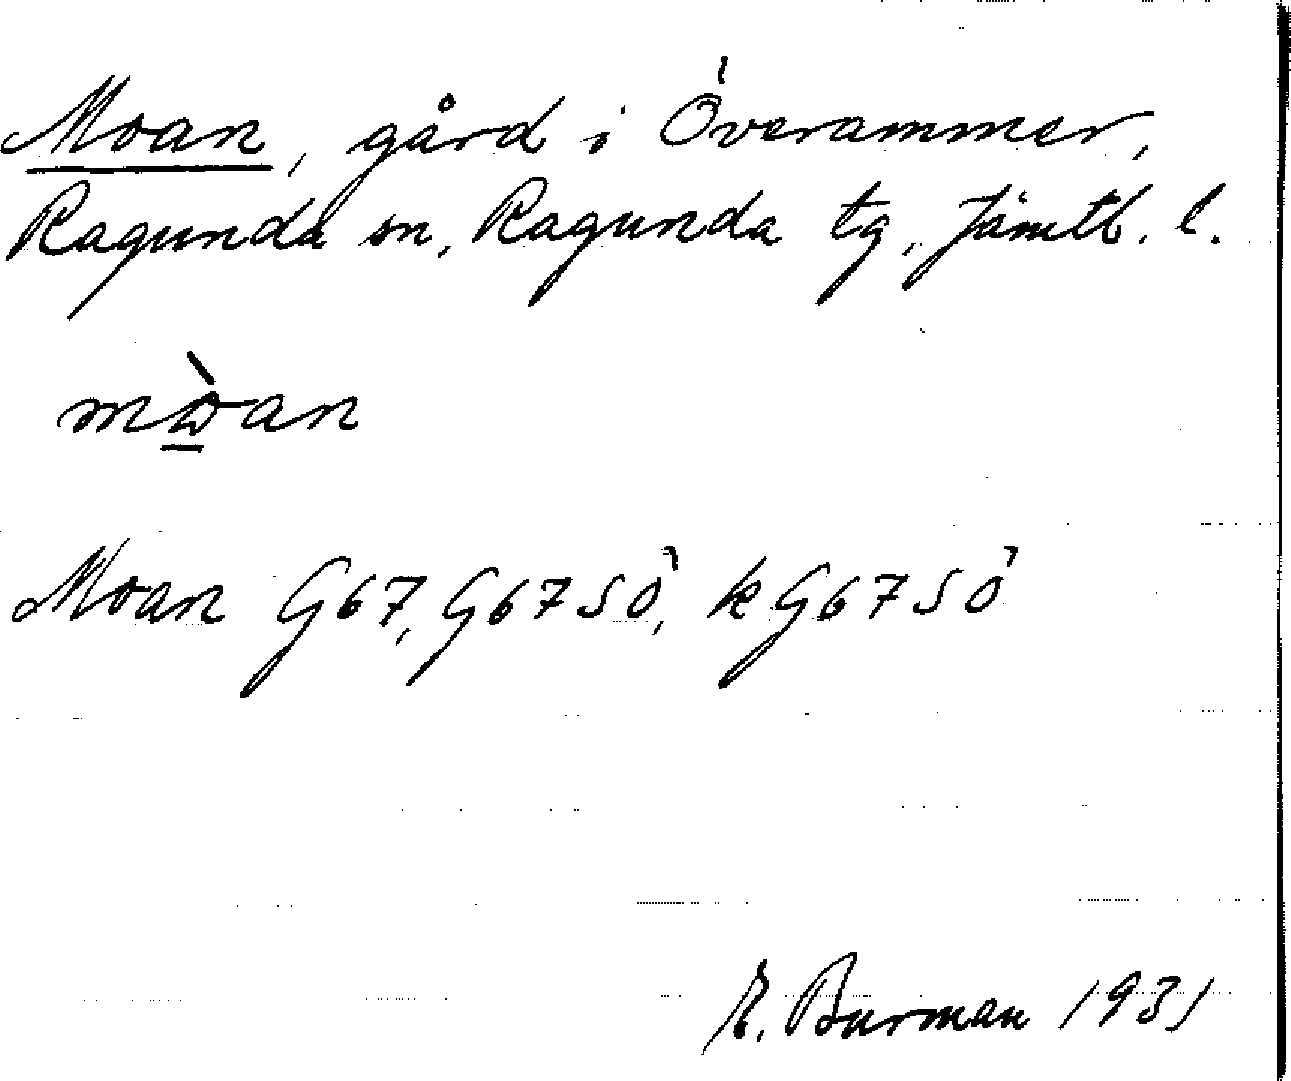 Moan, gård i Överammer,
Ragunda sn, Ragunda tg, Jämtl. l.
mɷ̀an
Moan G67, G67SÖ, kG67SÖ
E. Burman 1931